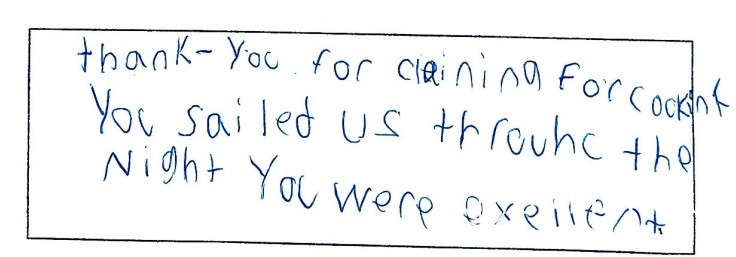 thank-You for claining For cockint
You sailed us throuhc the
Night You were exeilent